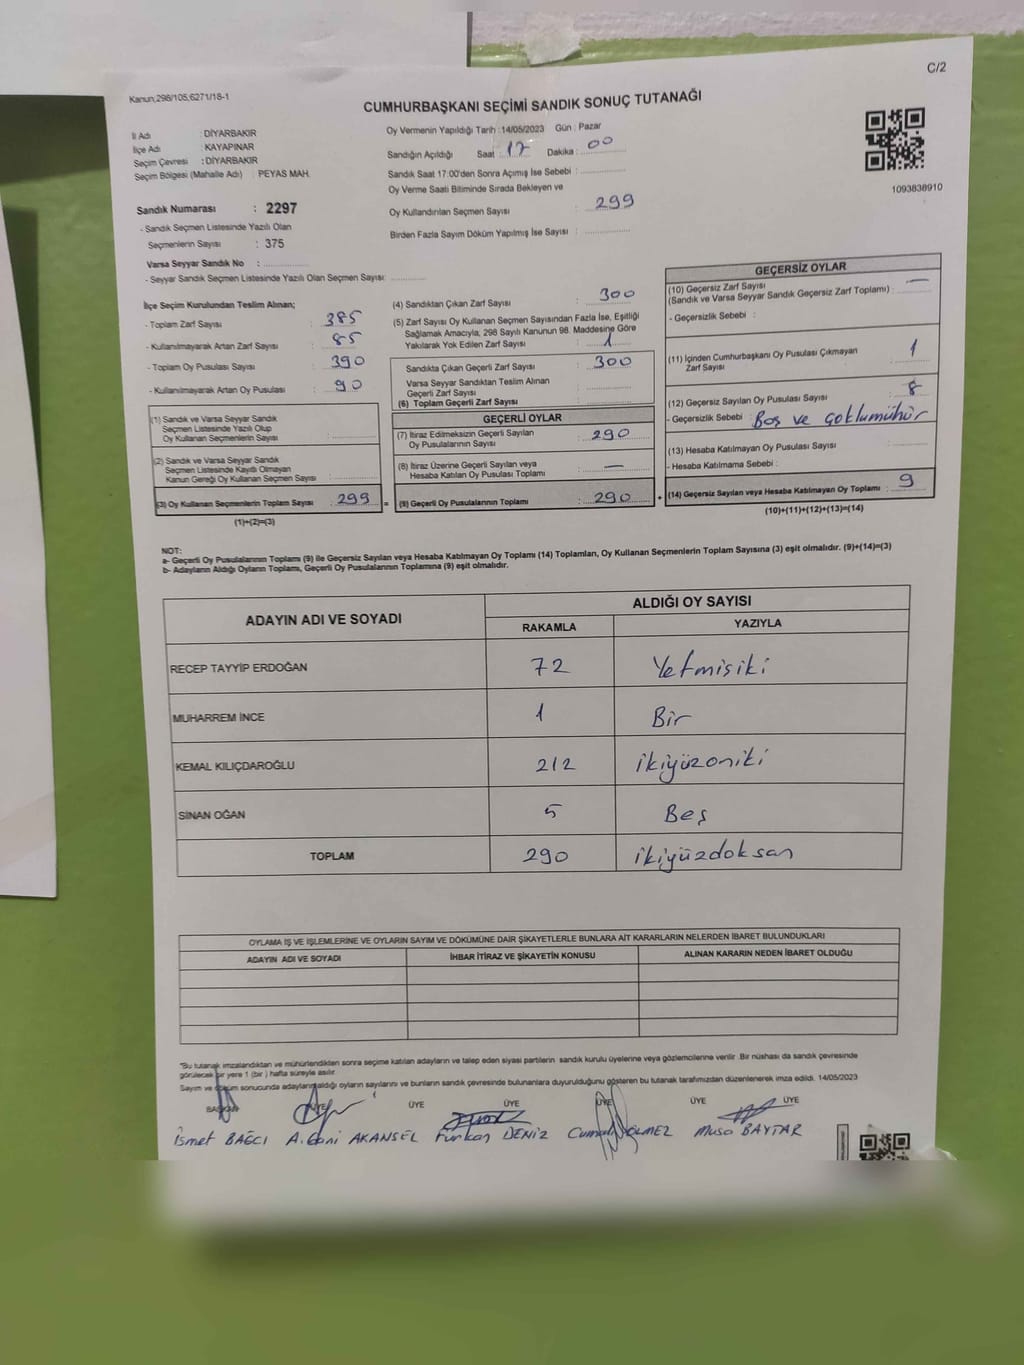 C/2
Kanun;298/105,6271/18-1
CUMHURBAŞKANI SEÇİMİ SANDIK SONUÇ TUTANAĞI
İl Adı : DİYARBAKIR
İlçe Adı : KAYAPINAR
Seçim Çevresi : DİYARBAKIR
Seçim Bölgesi (Mahalle Adı) : PEYAS MAH.
Sandık Numarası : 2297
- Sandık Seçmen Listesinde Yazılı Olan
Seçmenlerin Sayısı : 375
Varsa Seyyar Sandık No :
- Seyyar Sandık Seçmen Listesinde Yazılı Olan Seçmen Sayısı:
Oy Vermenin Yapıldığı Tarih :14/05/2023 Gün : Pazar
Sandığın Açıldığı Saat : 17 Dakika : 00
Sandık Saat 17:00'den Sonra Açımış İse Sebebi :
Oy Verme Saati Bitiminde Sırada Bekleyen ve
Oy Kullandırılan Seçmen Sayısı : 299
Birden Fazla Sayım Döküm Yapılmış İse Sayısı :
1093838910
İlçe Seçim Kurulundan Teslim Alınan;
- Toplam Zarf Sayısı : 385
- Kullanılmayarak Artan Zarf Sayısı : 85
- Toplam Oy Pusulası Sayısı : 390
- Kullanılmayarak Artan Oy Pusulası : 90
(1) Sandık ve Varsa Seyyar Sandık
Seçmen Listesinde Yazılı Olup
Oy Kullanan Seçmenlerin Sayısı :
(2) Sandık ve Varsa Seyyar Sandık
Seçmen Listesinde Kayıtlı Olmayan
Kanun Gereği Oy Kullanan Seçmen Sayısı :
(3) Oy Kullanan Seçmenlerin Toplam Sayısı : 299 =
(1)+(2)=(3)
(4) Sandıktan Çıkan Zarf Sayısı : 300
(5) Zarf Sayısı Oy Kullanan Seçmen Sayısından Fazla İse, Eşitliği
Sağlamak Amacıyla, 298 Sayılı Kanunun 98. Maddesine Göre
Yakılarak Yok Edilen Zarf Sayısı : 1
Sandıkta Çıkan Geçerli Zarf Sayısı : 300
Varsa Seyyar Sandıktan Teslim Alınan
Geçerli Zarf Sayısı :
(6) Toplam Geçerli Zarf Sayısı :
GEÇERLİ OYLAR
(7) İtiraz Edilmeksizin Geçerli Sayılan
Oy Pusulalarının Sayısı : 290
(8) İtiraz Üzerine Geçerli Sayılan veya
Hesaba Katılan Oy Pusulası Toplamı : —
(9) Geçerli Oy Pusulalarının Toplamı : 290 +
GEÇERSİZ OYLAR
(10) Geçersiz Zarf Sayısı
(Sandık ve Varsa Seyyar Sandık Geçersiz Zarf Toplamı) : —
- Geçersizlik Sebebi :
(11) İçinden Cumhurbaşkanı Oy Pusulası Çıkmayan
Zarf Sayısı : 1
(12) Geçersiz Sayılan Oy Pusulası Sayısı : 8
- Geçersizlik Sebebi : Boş ve çoklumühür
(13) Hesaba Katılmayan Oy Pusulası Sayısı :
- Hesaba Katılmama Sebebi :
(14) Geçersiz Sayılan veya Hesaba Katılmayan Oy Toplamı : 9
(10)+(11)+(12)+(13)=(14)
NOT:
a- Geçerli Oy Pusulalarının Toplamı (9) ile Geçersiz Sayılan veya Hesaba Katılmayan Oy Toplamı (14) Toplamları, Oy Kullanan Seçmenlerin Toplam Sayısına (3) eşit olmalıdır. (9)+(14)=(3)
b- Adayların Aldığı Oyların Toplamı, Geçerli Oy Pusulalarının Toplamına (9) eşit olmalıdır.
ADAYIN ADI VE SOYADI ALDIĞI OY SAYISI
RAKAMLA YAZIYLA
RECEP TAYYİP ERDOĞAN 72 Yetmişiki
MUHARREM İNCE 1 Bir
KEMAL KILIÇDAROĞLU 212 ikiyüzoniki
SİNAN OĞAN 5 Beş
TOPLAM 290 ikiyüzdoksan
OYLAMA İŞ VE İŞLEMLERİNE VE OYLARIN SAYIM VE DÖKÜMÜNE DAİR ŞİKAYETLERLE BUNLARA AİT KARARLARIN NELERDEN İBARET BULUNDUKLARI
ADAYIN ADI VE SOYADI İHBAR İTİRAZ VE ŞİKAYETİN KONUSU ALINAN KARARIN NEDEN İBARET OLDUĞU
*Bu tutanak imzalandıktan ve mühürlendikten sonra seçime katılan adayların ve talep eden siyasi partilerin sandık kurulu üyelerine veya gözlemcilerine verilir .Bir nüshası da sandık çevresinde
görülecek bir yere 1 (bir ) hafta süreyle asılır.
Sayım ve döküm sonucunda adayların aldığı oyların sayılarını ve bunların sandık çevresinde bulunanlara duyurulduğunu gösteren bu tutanak tarafımızdan düzenlenerek imza edildi. 14/05/2023
BAŞKAN ÜYE ÜYE ÜYE ÜYE ÜYE ÜYE
İsmet BAĞCI A. AKANSEL Furkan DENİZ Cumali ÖLMEZ Musa BAYTAR